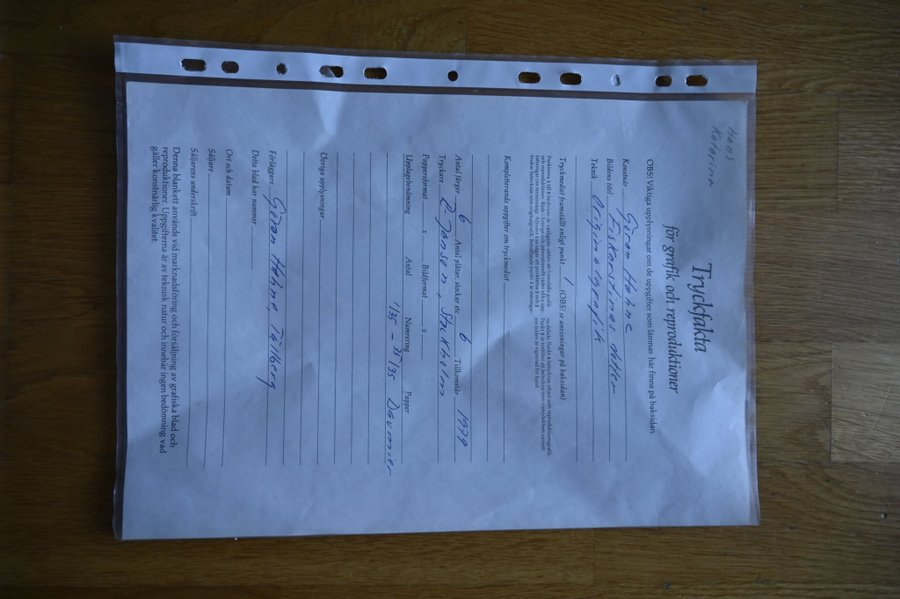 Hans
Katarina
Tryckfakta
för grafik och reproduktioner
OBS! Viktiga upplysningar om de uppgifter som lämnas här finns på baksidan.
Konstnär Göran Hahne
Bildens titel Fiskarflinas dotter
Teknik Originalgrafik
Tryckmediet framställt enligt punkt 1 (OBS! se anvisningar på baksidan)
Kompletterande uppgifter om tryckmediet
Antal färger 6 Antal plåtar, stockar etc 6 Tillkomstår 1979
Tryckare R. Jansen, Stockholm
Pappersformat x Bildformat x
Upplagebenämning Antal Numrering Papper
1/35 – 35/35 Daumier
Övriga upplysningar
Förläggare Göran Hahne, Tällberg
Detta blad har nummer
Ort och datum
Säljare
Säljarens underskrift
Denna blankett används vid marknadsföring och försäljning av grafiska blad och
reproduktioner. Uppgifterna är av teknisk natur och innebär ingen bedömning vad
gäller konstnärlig kvalitet.